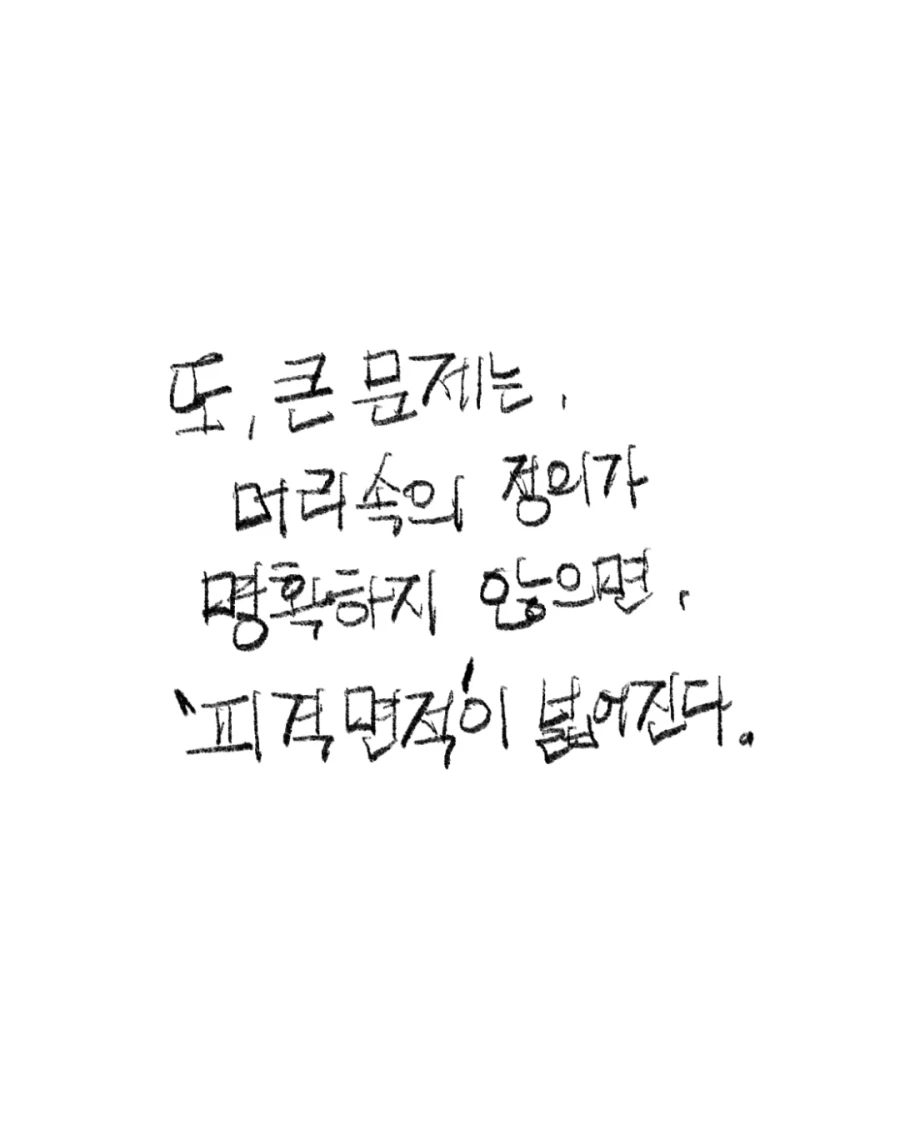 또, 큰 문제는,
머리속의 정의가
명확하지 않으면,
'피격면적'이 넓어진다.